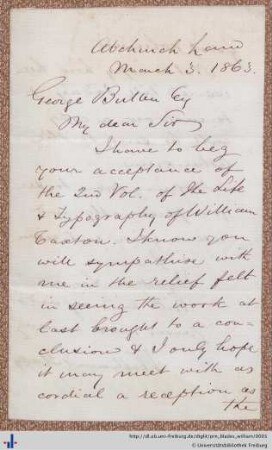 Abchurch Lane
March 3. 1863.
George Butler Esq
My dear Sir
I have to beg
your acceptance of
the 2nd Vol. of the Life
& Typography of William
Caxton. I know you
will sympathise with
me in the relief felt
in seeing the work at
last brought to a con-
clusion & I only hope
it may meet with as
cordial a reception as
the
http://dl.ub.uni-freiburg.de/diglit/prm_blades_william/0001
© Universitätsbibliothek Freiburg